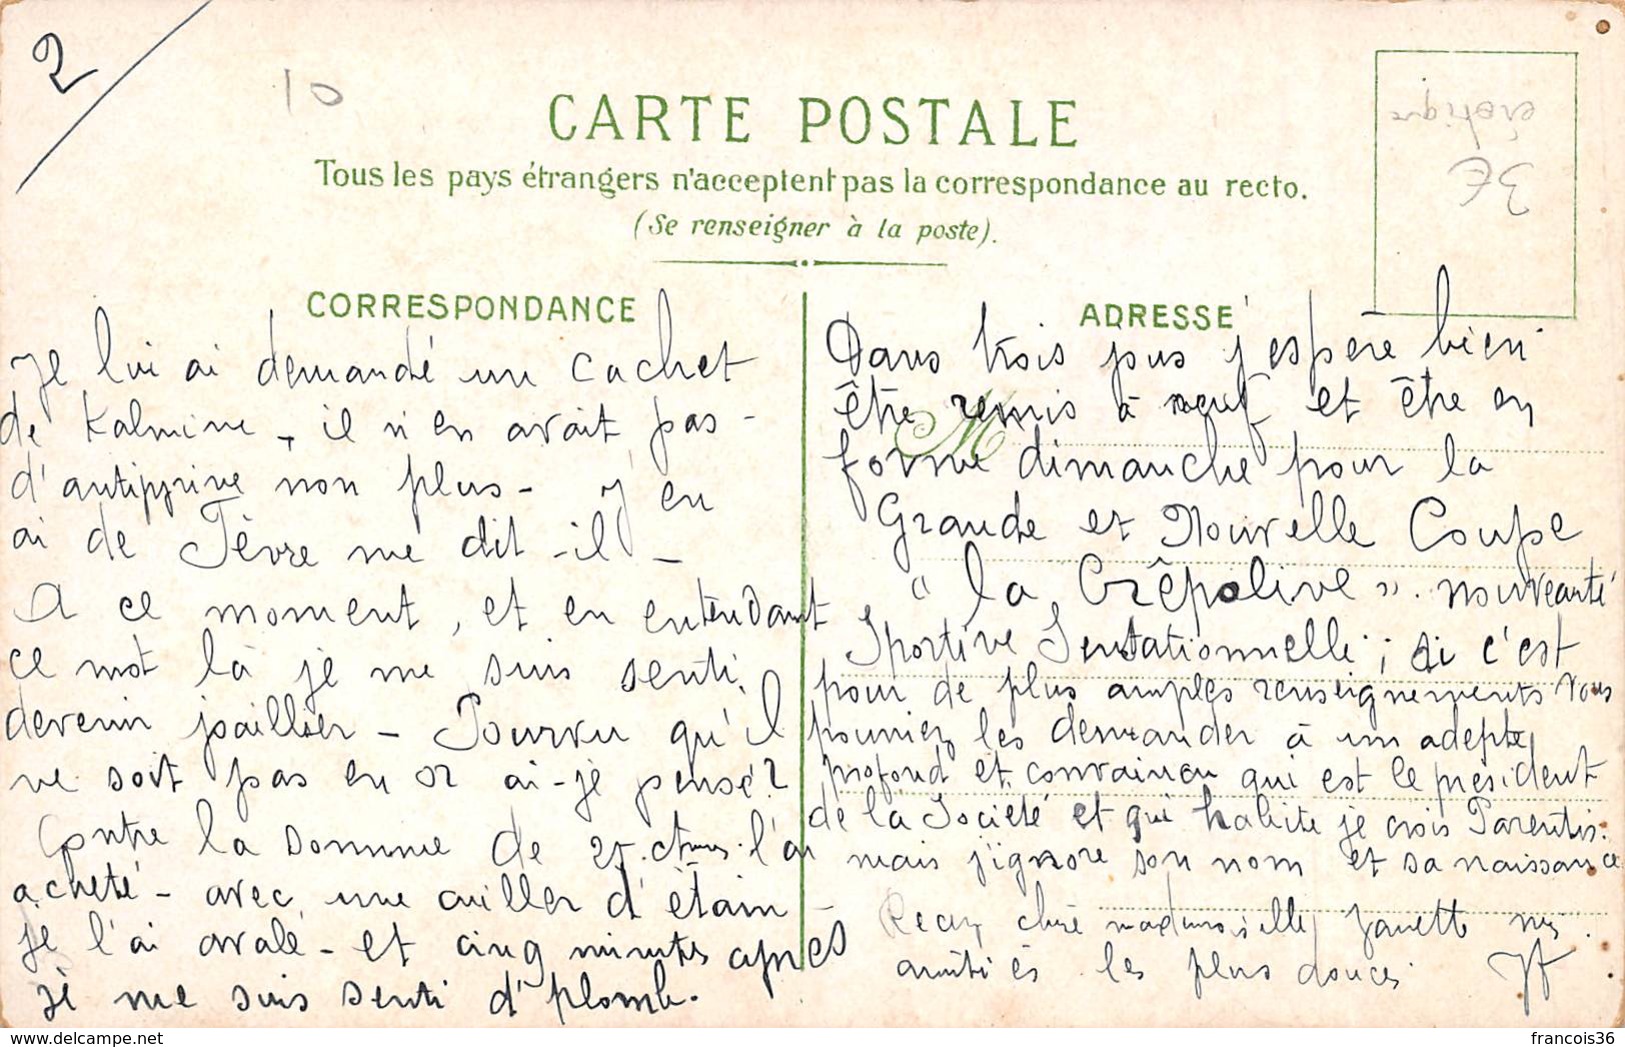 2
10
CARTE POSTALE
Tous les pays étrangers n'acceptent pas la correspondance au recto.
(Se renseigner à la poste).
érotique
3€
CORRESPONDANCE
Je lui ai demandé un cachet
de Kalmine, il n'en avait pas -
d'antipyrine non plus - J'en
ai de Fèvre me dit-il -
A ce moment, et en entendant
ce mot là je me suis senti
devenir joaillier - Pourvu qu'il
ne soit pas en or ai-je pensé?
Contre la somme de 25 ctmes l'ai
acheté - avec une cuiller d'étain -
je l'ai avalé - et cinq minutes après
je me suis senti d'plomb.
ADRESSE
Dans trois jous j'espère bien
M
être remis à neuf et être en
forme dimanche pour la
Grande et Nouvelle Coupe
"la Crêpolive". nouveauté
Sportive Sensationnelle; si c'est
pour de plus amples renseignements vous
pourriez les demander à un adepte
profond et convaincu qui est le président
de la Société et qui habite je crois Parentis.
mais j'ignore son nom et sa naissance
Recevez chère mademoiselle Janette mes
amitiés les plus douces.
francois36